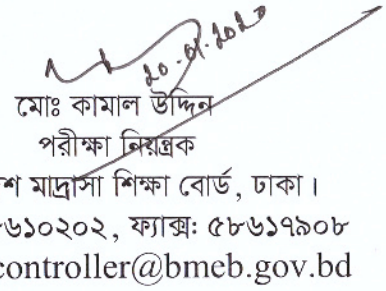 20.01.2020
মোঃ কামাল উদ্দিন
পরীক্ষা নিয়ন্ত্রক
শ মাদ্রাসা শিক্ষা বোর্ড, ঢাকা।
৮৬১০২০২, ফ্যাক্সঃ ৫৮৬১৭৯০৮
controller@bmeb.gov.bd